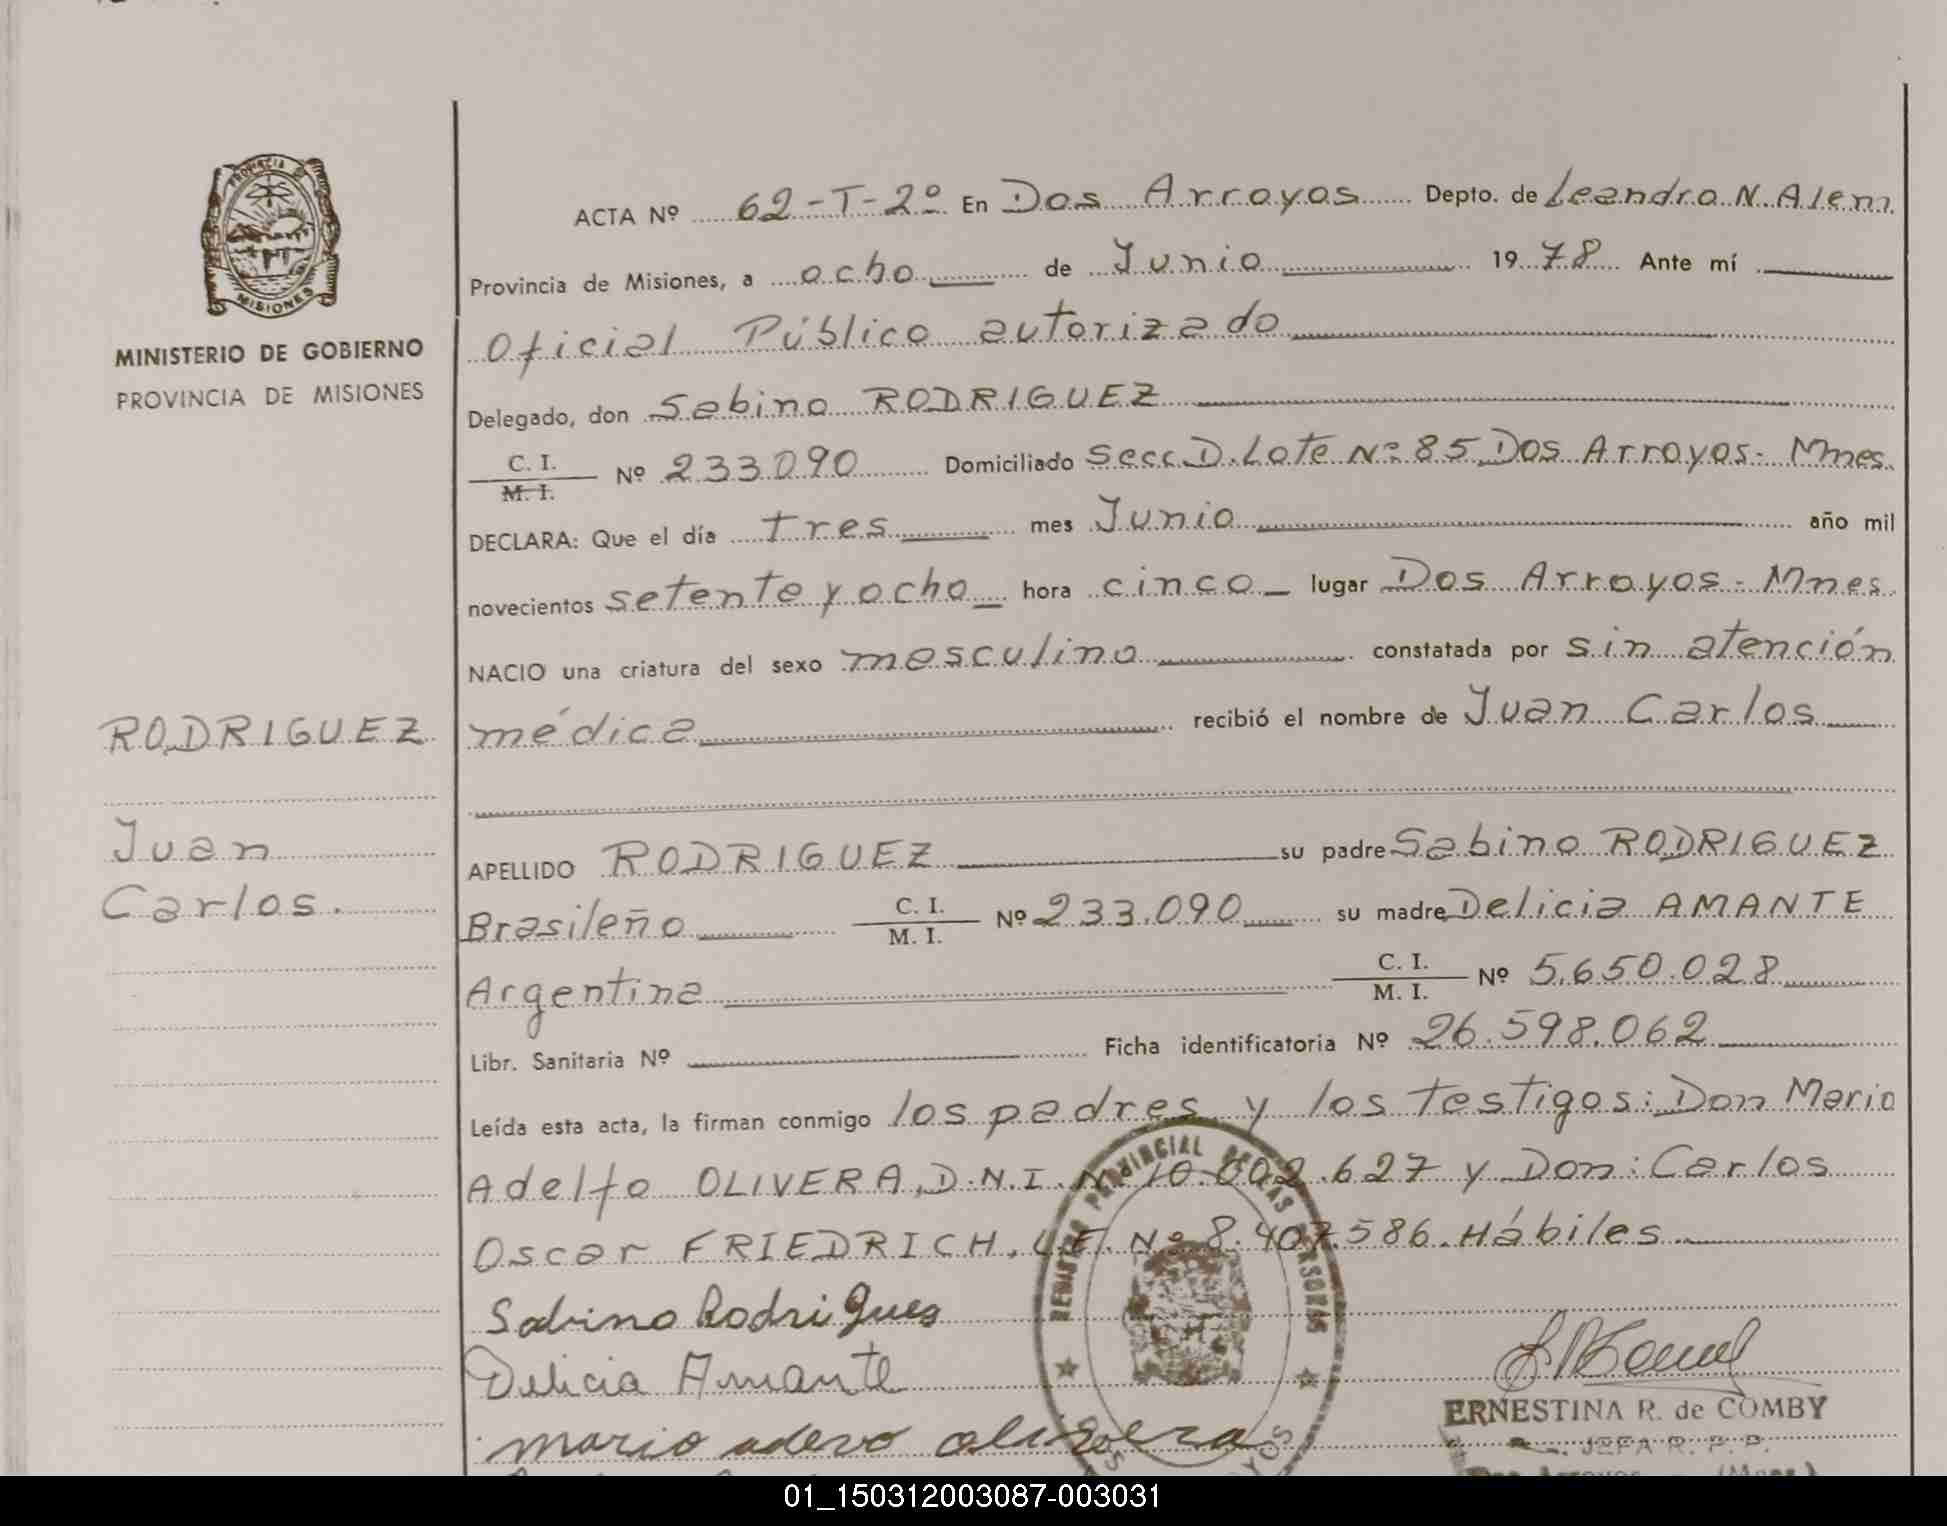 PROVINCIA
MISIONES
MINISTERIO DE GOBIERNO
PROVINCIA DE MISIONES
RODRIGUEZ
Juan
Carlos.
ACTA Nº 62-T-2º En Dos Arroyos Depto. de Leandro N. Alem
Provincia de Misiones, a ocho de Junio 1978 Ante mí
Oficial Público autorizado
Delegado, don Sabino RODRIGUEZ
C. I. / M. I. Nº 233.090 Domiciliado Secc. D. Lote Nº 85 Dos Arroyos - Mnes.
DECLARA: Que el día tres mes Junio año mil
novecientos setenta y ocho hora cinco lugar Dos Arroyos - Mnes.
NACIO una criatura del sexo masculino constatada por sin atención
médica recibió el nombre de Juan Carlos
APELLIDO RODRIGUEZ su padre Sabino RODRIGUEZ
Brasileño C. I. / M. I. Nº 233.090 su madre Delicia AMANTE
Argentina C. I. / M. I. Nº 5.650.028
Libr. Sanitaria Nº Ficha identificatoria Nº 26.598.062
Leída esta acta, la firman conmigo los padres y los testigos: Don Mario
Adelfo OLIVERA, D.N.I. Nº 10.002.627 y Don: Carlos
Oscar FRIEDRICH, L.E. Nº 8.407.586. Hábiles
Sabino Rodrigues
Delicia Amante
REGISTRO PROVINCIAL DE LAS PERSONAS
ERNESTINA R. de COMBY
mario adevo olivera
JEFA R. P. P.
01_150312003087-003031